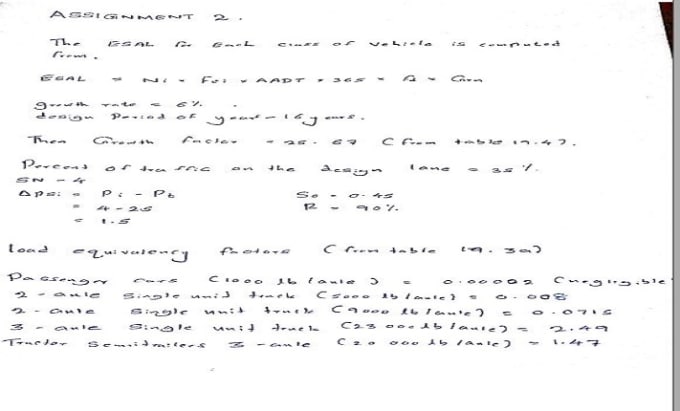 ASSIGNMENT 2.
The ESAL for Each class of vehicle is computed
from.
ESAL = Ni × FEi × AADT × 365 × fd × Grn
growth rate = 6%.
design Period of years - 16 years.
Then Growth factor = 25.67 (from table 19.4).
Percent of traffic on the design lane = 35%.
SN = 4
ΔPsi = Pi - Pt So = 0.45
= 4 - 2.5 R = 90%.
= 1.5
load equivalency factors (from table 19.3a)
Passenger cars (1000 lb/axle) = 0.00002 (negligible
2 - axle single unit truck (5000 lb/axle) = 0.008
2 - axle single unit truck (9000 lb/axle) = 0.0715
3 - axle single unit truck (23 000 lb/axle) = 2.49
Tractor Semitrailers 3 - axle (20 000 lb/axle) = 1.47